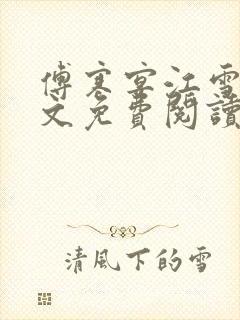 傅寒宴江雪
文免費閱讀
清風下的雪